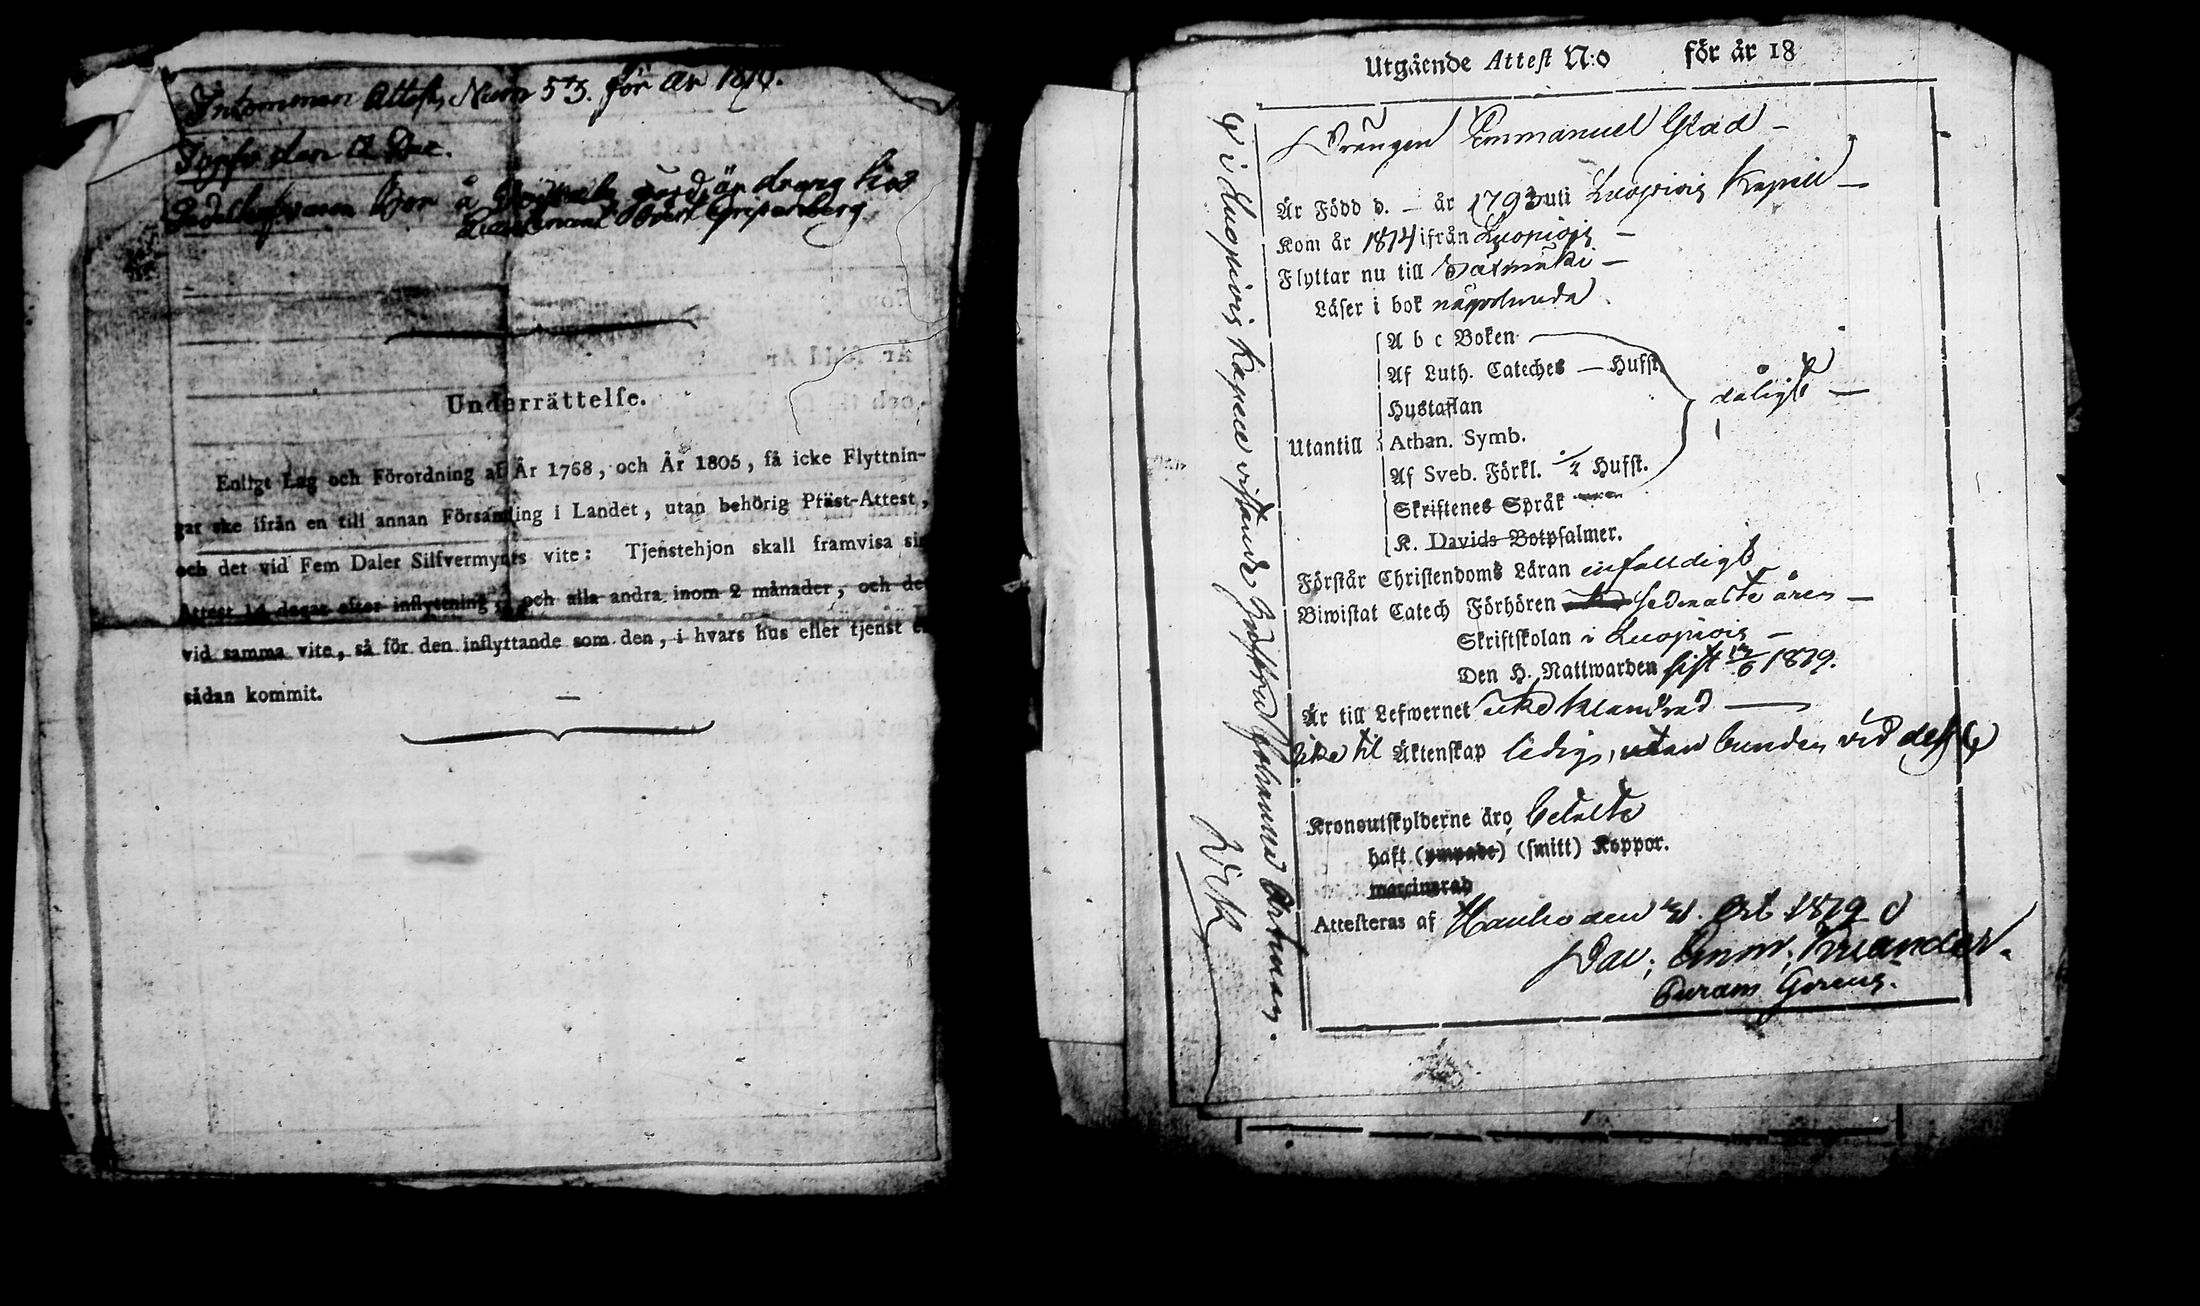 Inkommen Attest, Num 573. för år 1819.
den 12 Dec.
Bor å gård, är drang hos
Lieutenant Gripenberg
Underrättelse.
Enligt Lag och Förordning af År 1768, och År 1805, få icke Flyttnin-
gar ske ifrån en till annan Församling i Landet, utan behörig Präst-Attest,
och det vid Fem Daler Silfvermynts vite: Tjenstehjon skall framvisa sin
Attest 14 dagar efter inflyttning, och alla andra inom 2 månader, och de
vid samma vite, så för den inflyttande som den, i hvars hus eller tjenst
sådan kommit.
Utgående Attest N:o för år 18
Drängen Emmanuel Glad –
Är Född d. – år 1793 uti Luopiois Kapell –
Kom år 1814 ifrån Luopiois –
Flyttar nu till Sääxmäki –
Läser i bok någorlunda
A b c Boken
Af Luth. Cateches — Hufst.
Hustaflan
dåligt —
Utantill Athan. Symb.
Af Sveb. Förkl. 1/2 Hufst.
Skriftenes Språk
K. Davids Botpsalmer.
Förstår Christendoms Läran enfaldigt
Biwistat Catech Förhören sednaste åren —
Skriftskolan i Luopiois –
Den H. Nattwarden sist 1819.
Är till Lefwernet icke klandrad —
icke til Äktenskap ledig, utan bunden vid dess
Kronoutskylderne äro betalte
haft (ympade) (smitt) Koppor.
Attesteras af Hauho den 21. Oct 1819
Dav: Emm: Kreander.
Curam Gerens.
i Luopiois Kapell vistande Hustru Johanna